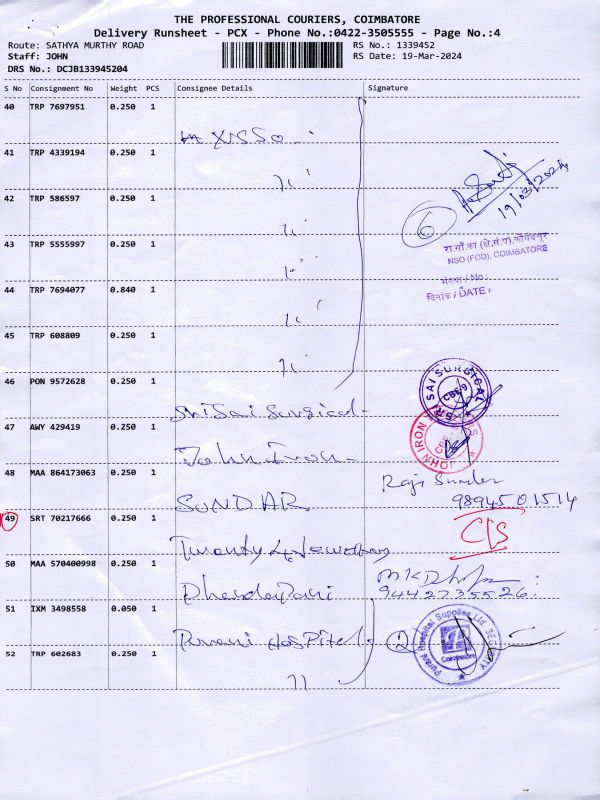 THE PROFESSIONAL COURIERS, COIMBATORE
Delivery Runsheet - PCX - Phone No.:0422-3505555 - Page No.:4
Route: SATHYA MURTHY ROAD
RS No.: 1339452
Staff: JOHN
RS Date: 19-Mar-2024
DRS No.: DCJB133945204
S No Consignment No Weight PCS Consignee Details Signature
40 TRP 7697951 0.250 1
41 TRP 4339194 0.250 1
19/03/2024
42 TRP 586597 0.250 1
6
43 TRP 5555997 0.250 1
NSO (FOD), COIMBATORE
44 TRP 7694077 0.840 1
No:
दिनांक / DATE :
45 TRP 608809 0.250 1
46 PON 9572628 0.250 1
Sri Sai Surgical
SRI SAI SURGICAL
CBE-9
47 AWY 429419 0.250 1
John Iron
JOHN IRON
48 MAA 864173063 0.250 1
SUNDAR
Raji Sunder
9894501514
49 SRT 70217666 0.250 1
C/S
50 MAA 570400998 0.250 1
9442735526
51 IXM 3498558 0.050 1
Purani Hospital
2
Purani Hospital Supplies Ltd SECURITY
Coimbatore
52 TRP 602683 0.250 1